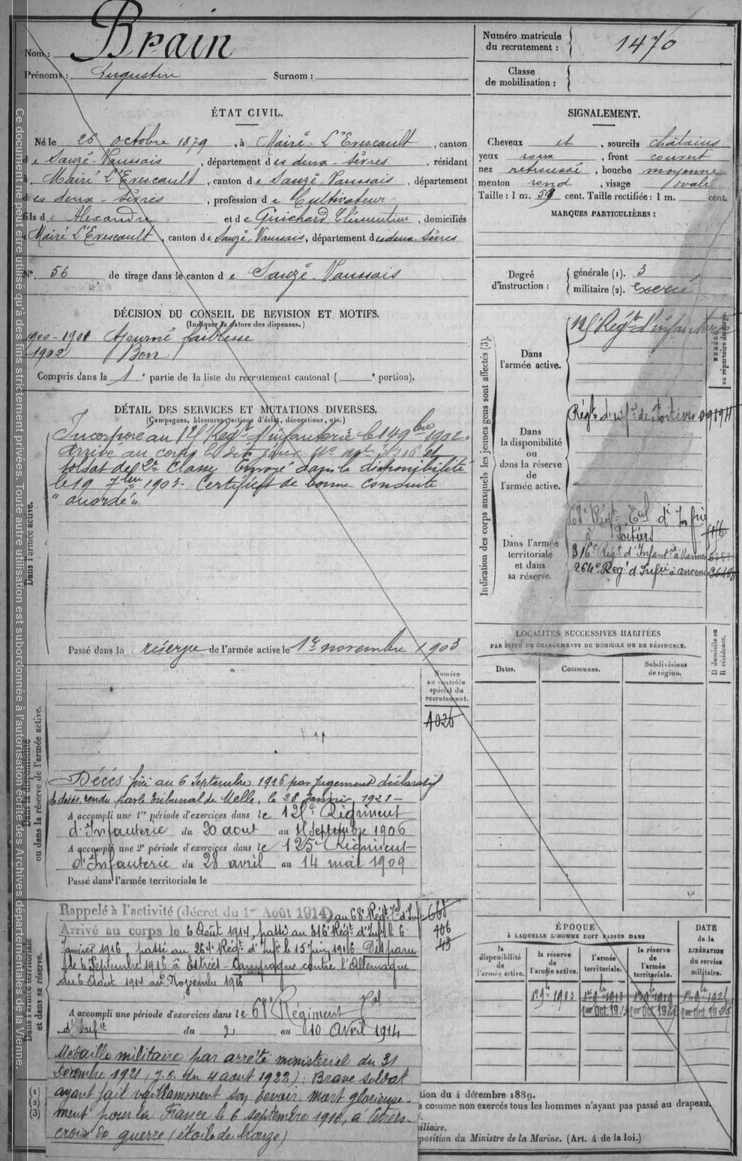 Nom : Brain
Prénoms : Augustin Surnom :
Numéro matricule du recrutement : 1470
Classe de mobilisation :
ÉTAT CIVIL.
Né le 26 octobre 1879, à Mairé-L'Evescault, canton
de Sauzé-Vaussais, département des deux-sèvres, résidant
à Mairé L'Evescault, canton de Sauzé-Vaussais, département
des deux-sèvres, profession de Cultivateur
fils d'Alexandre et de Guichard Clémentine, domiciliés
Mairé L'Evescault, canton de Sauzé-Vaussais, département des deux sèvres
N° 56 de tirage dans le canton de Sauzé-Vaussais
SIGNALEMENT.
Cheveux et, sourcils châtains
yeux roux, front couvert
nez retroussé, bouche moyenne
menton rond, visage ovale
Taille : 1 m. 59 cent. Taille rectifiée : 1 m. cent.
MARQUES PARTICULIÈRES :
Degré d'instruction : générale (1). 3
militaire (2). Exercé
DÉCISION DU CONSEIL DE REVISION ET MOTIFS.
(Indiquer la nature des dispenses.)
1900-1901 Ajourné faiblesse
1902 Bon
Compris dans la 1e partie de la liste du recrutement cantonal ( e portion).
DÉTAIL DES SERVICES ET MUTATIONS DIVERSES.
(Campagnes, blessures, actions d'éclat, décorations, etc.)
Incorporé au 125 Régt d'infanterie le 14 9bre 1902.
Arrivé au corps le dit jour
soldat de 2e Classe Envoyé dans la disponibilité
le 19 7bre 1903. Certificat de bonne conduite
"accordé".
Passé dans la réserve de l'armée active le 1er novembre 1903
Dans l'armée active.
Indication des corps auxquels les jeunes gens sont affectés (3).
Dans l'armée active.
125e Régt d'infanterie
Dans la disponibilité ou dans la réserve de l'armée active.
Régt d'infie de Poitiers
Dans l'armée territoriale et dans sa réserve.
68e Régt Tal d'Infie
à Poitiers
316e Régt d'Infantie à Vannes
264e Regt d'Infie à Ancenis
LOCALITÉS SUCCESSIVES HABITÉES
PAR SUITE DE CHANGEMENTS DE DOMICILE OU DE RÉSIDENCE.
Dates. Communes. Subdivisions de région. D. domicile ou R. résidence.
Numéro au contrôle spécial du recrutement.
1026
ou dans la réserve de l'armée active.
Décès fixé au 6 Septembre 1916 par jugement déclaratif
de décès rendu par le tribunal de Melle, le 28 Janvier 1921
A accompli une 1re période d'exercices dans le 125e Régiment
d'Infanterie du 20 aout au Septembre 1906
A accompli une 2e période d'exercices dans le 125e Régiment
d'Infanterie du 28 avril au 14 mai 1909
Passé dans l'armée territoriale le
Dans l'armée territoriale et dans sa réserve.
Rappelé à l'activité (décret du 1er Août 1914) au 68e Régt Tal d'Infie
Arrivé au corps le 6 Août 1914, passé au 316e Régt d'Infie le 6
Janvier 1916 passé au 264e Régt d'Infie le 15 Juin 1916. Disparu
le 6 Septembre 1916 à Estrées. Campagne contre l'Allemagne
du 6 Août 1914 au Novembre 1916
A accompli une période d'exercices dans le 67e Régiment Tal
d'Infie du 2 au 10 Avril 1914
Médaille militaire par arrêté ministériel du 31
Décembre 1921 (J.O. du 4 aout 1922) : Brave soldat
ayant fait vaillamment son devoir. Mort glorieuse-
ment pour la France le 6 septembre 1916, à
croix de guerre (étoile de bronze)
ÉPOQUE
À LAQUELLE L'HOMME DOIT PASSER DANS
la disponibilité de l'armée active. la réserve de l'armée active. l'armée territoriale. la réserve de l'armée territoriale.
DATE de la LIBÉRATION du service militaire.
tion du 4 décembre 1889.
à comme non exercés tous les hommes n'ayant pas passé au drapeau.
position du Ministre de la Marine. (Art. 4 de la loi.)
Ce document ne peut être utilisé qu'à des fins strictement privées. Toute autre utilisation est subordonnée à l'autorisation écrite des Archives départementales de la Vienne.